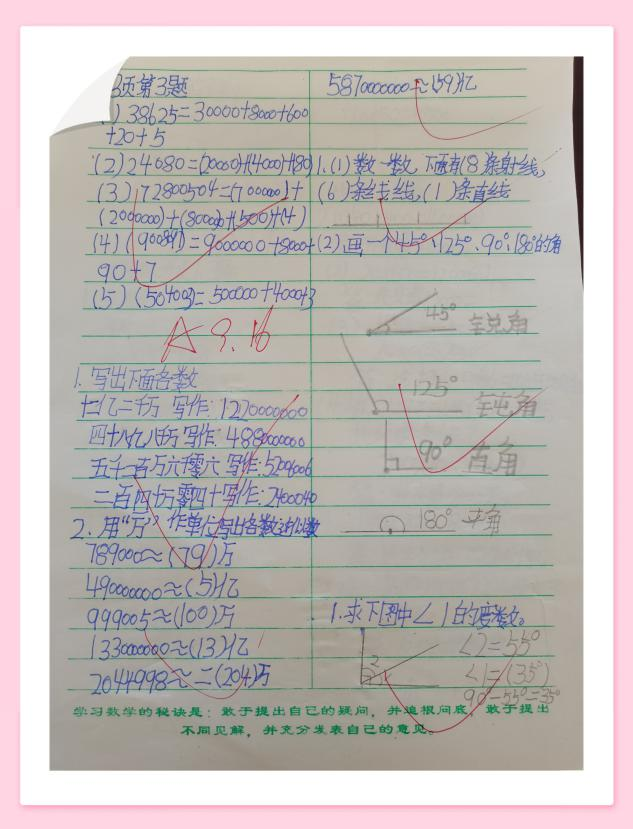 3页第3题
) 38625=30000+8000+600
+20+5
(2) 24080=(20000)+(4000)+(80)
(3) 7280504=(7000000)+
(200000)+(80000)+(500)+(4)
(4) ( )=9000000+8000+
90+7
(5) (504003)=500000+4000+3
A 9.16
1. 写出下面各数
十二亿二千万 写作:1220000000
四十八亿八千万 写作:
五千二百万六千零六 写作:
二百四十万零四十写作:2400040
2. 用“万”作单位写出各数近似数
789000≈(79)万
490000000≈(5)亿
999005≈(100)万
1330000000≈(13)亿
2044998≈二(204)万
≈(59)亿
1. (1) 数一数,下面有(8)条射线,
(6)条线线,(1)条直线
(2)画一个45°、125°、90°、180°的角
45° 锐角
125° 钝角
90° 直角
180° 平角
1. 求下图中∠1的度数。
2
∠2=55°
∠1=(35°)
90°-55°=35°
学习数学的秘诀是:敢于提出自己的疑问,并追根问底,敢于提出
不同见解,并充分发表自己的意见。